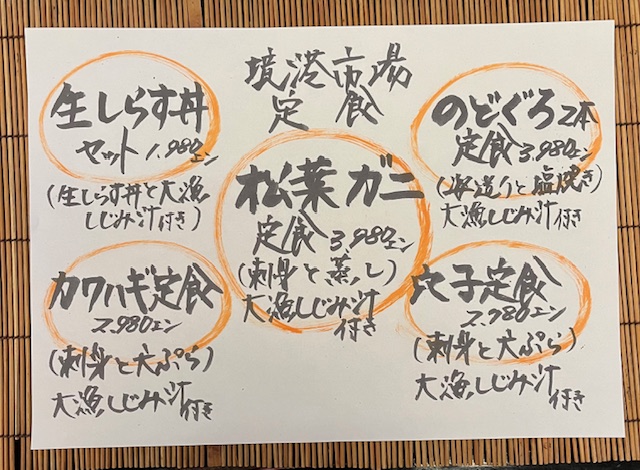 境港市場
定食
生しらす丼
セット 1,980エン
(生しらす丼と大漁
しじみ汁付き)
のどぐろ2本
定食 3,980エン
(姿造りと塩焼き)
大漁しじみ汁付き
松葉ガニ
定食 3,980エン
(刺身と蒸し)
大漁しじみ汁
付き
カワハギ定食
2,980エン
(刺身と天ぷら)
大漁しじみ汁付き
穴子定食
2,780エン
(刺身と天ぷら)
大漁しじみ汁付き